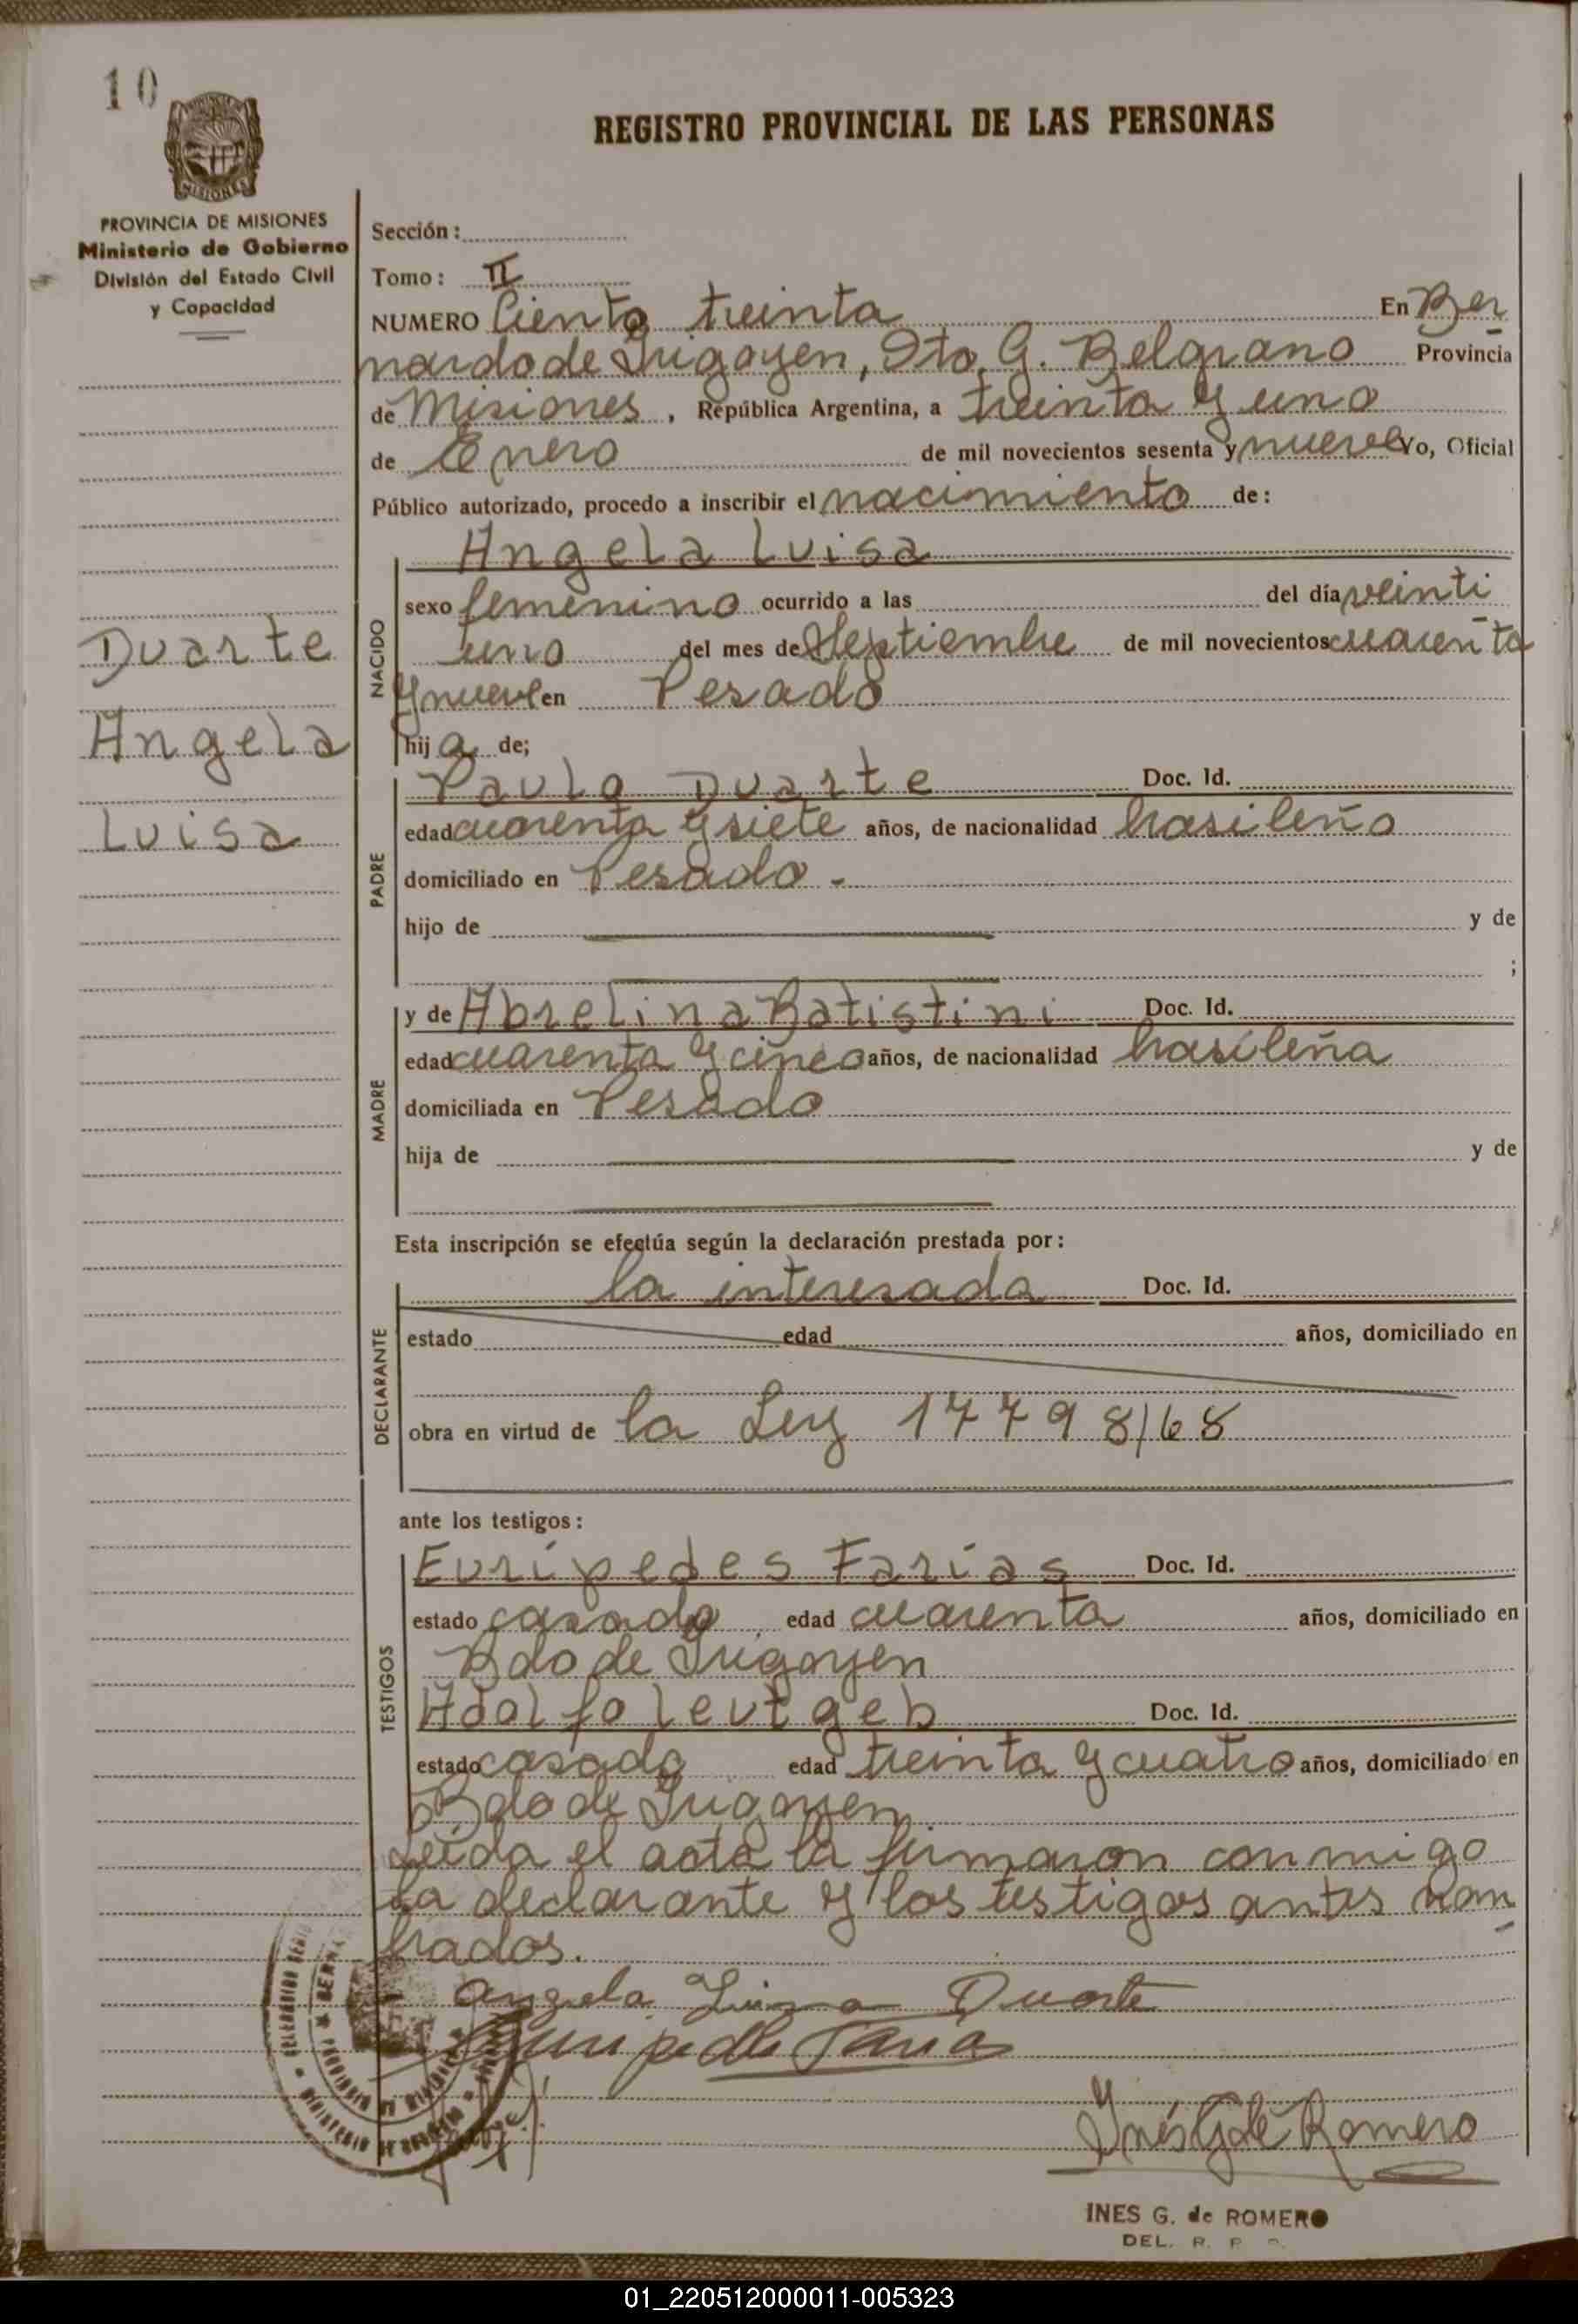 10
REGISTRO PROVINCIAL DE LAS PERSONAS
MISIONES
PROVINCIA DE MISIONES
Ministerio de Gobierno
División del Estado Civil
y Capacidad
Sección:
Tomo: II
NUMERO Ciento treinta En Ber
nardo de Irigoyen, Dto. G. Belgrano Provincia
de Misiones, República Argentina, a treinta y uno
de Enero de mil novecientos sesenta y nueve Yo, Oficial
Público autorizado, procedo a inscribir el nacimiento de:
Angela Luisa
NACIDO
sexo femenino ocurrido a las del día veinti
uno del mes de Septiembre de mil novecientos cuarenta
y nueve en Pesado
hija de;
Duarte
Angela
Luisa
PADRE
Paulo Duarte Doc. Id.
edad cuarenta y siete años, de nacionalidad brasileño
domiciliado en Pesado.
hijo de y de
;
MADRE
y de Abrelina Batistini Doc. Id.
edad cuarenta y cinco años, de nacionalidad brasileña
domiciliada en Pesado
hija de y de
Esta inscripción se efectúa según la declaración prestada por:
DECLARANTE
la interesada Doc. Id.
estado edad años, domiciliado en
obra en virtud de la Ley 17798/68
ante los testigos:
TESTIGOS
Eurípedes Farías Doc. Id.
estado casado, edad cuarenta años, domiciliado en
Bdo de Irigoyen
Adolfo Leutgeb Doc. Id.
estado casado edad treinta y cuatro años, domiciliado en
Bdo de Irigoyen
Leída el acta la firmaron conmigo
la declarante y los testigos antes nom
brados.
Angela Luisa Duarte
Euripedes Farias
Inés G. de Romero
INES G. de ROMERO
DEL. R. P.
01_220512000011-005323